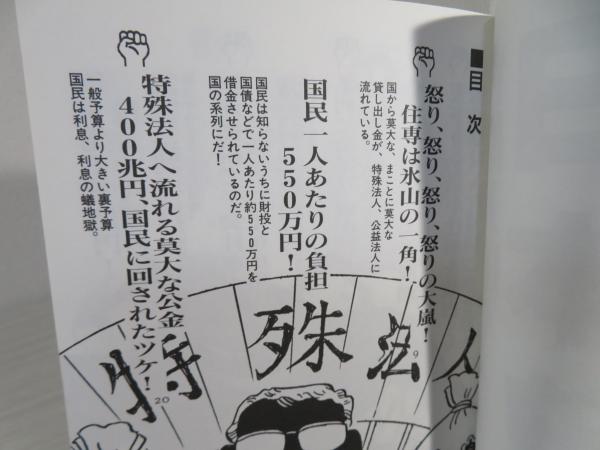 ■目次
怒り、怒り、怒り、怒りの大嵐!
住専は氷山の一角!
国から莫大な、まことに莫大な
貸し出し金が、特殊法人、公益法人に
流れている。
9
国民一人あたりの負担
550万円!
国民は知らないうちに財投と
国債などで一人あたり約550万円を
借金させられているのだ。
国の系列にだ!
特殊法人へ流れる莫大な公金
400兆円、国民に回されたツケ!
20
一般予算より大きい裏予算
国民は利息、利息の蟻地獄。
特殊法人